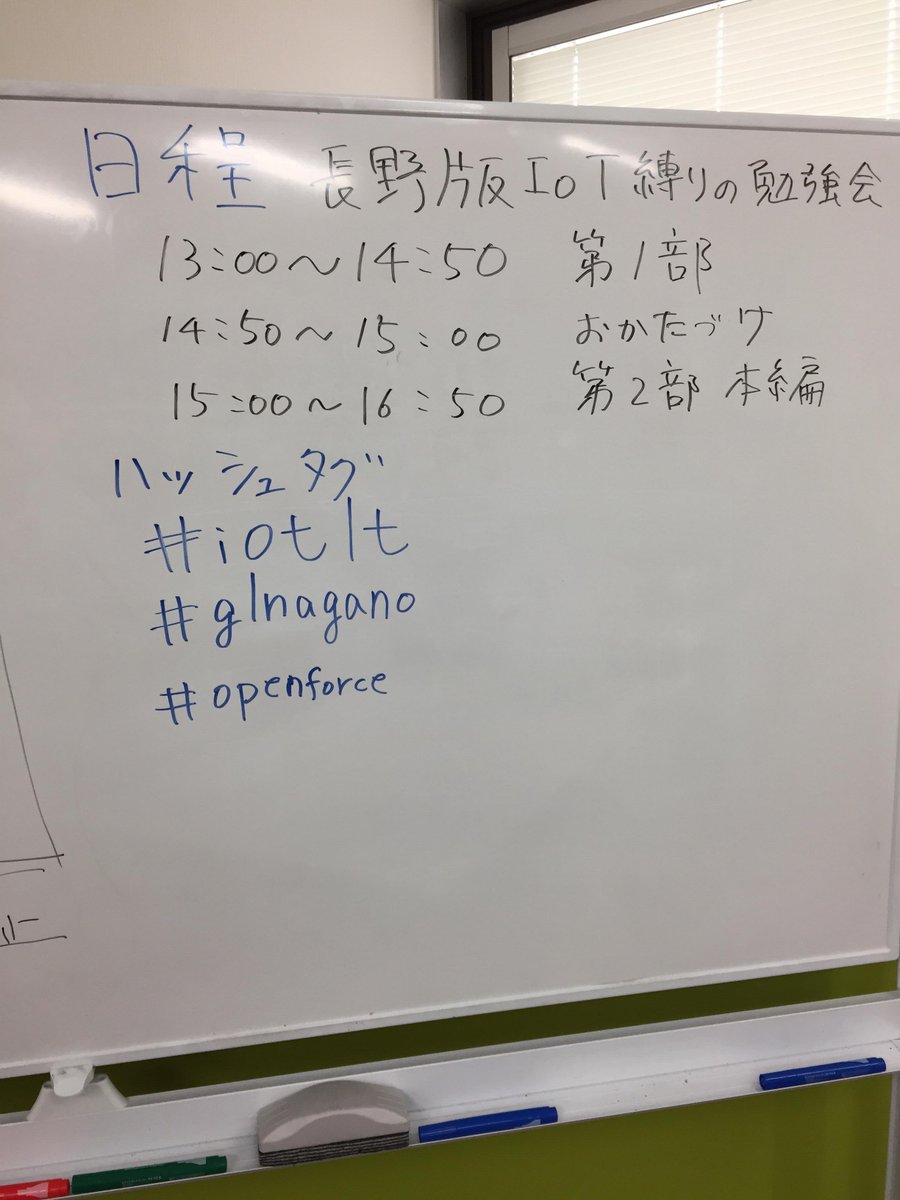 日程 長野版 IoT縛りの勉強会
13:00〜14:50 第1部
14:50〜15:00 おかたづけ
15:00〜16:50 第2部 本編
ハッシュタグ
#iotlt
#glnagano
#openforce